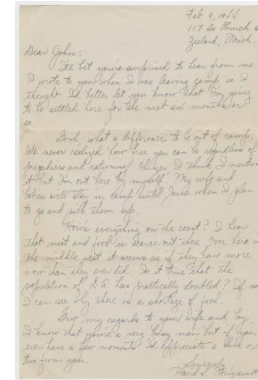 Feb 9, 1944
117 So Church St
Zeeland, Mich.
Dear John:
I'll bet you're surprised to hear from me
I wrote to you when I was leaving camp so I
thought I'd better let you know that I'm going
to be settled here for the next six months or
so.
Gosh, what a difference to be out of camp.
We never realized how free you can be regardless of
and rationing. I think I mentioned
that I'm out here by myself. My wife and
babies will stay in camp until June when I plan
to go and pick them up.
How's everything on the coast? I hear
that meat and food is scarce out there. From here in
the middle west it seems as if they have more
now than they ever did. Is it true that the
population of L.A. has practically doubled? If so
I can see why there is a shortage of food.
Give my regards to your wife and boy
I know that you're a very busy man but if you
ever have a few moments I'd appreciate a line or
two from you.
Sincerely